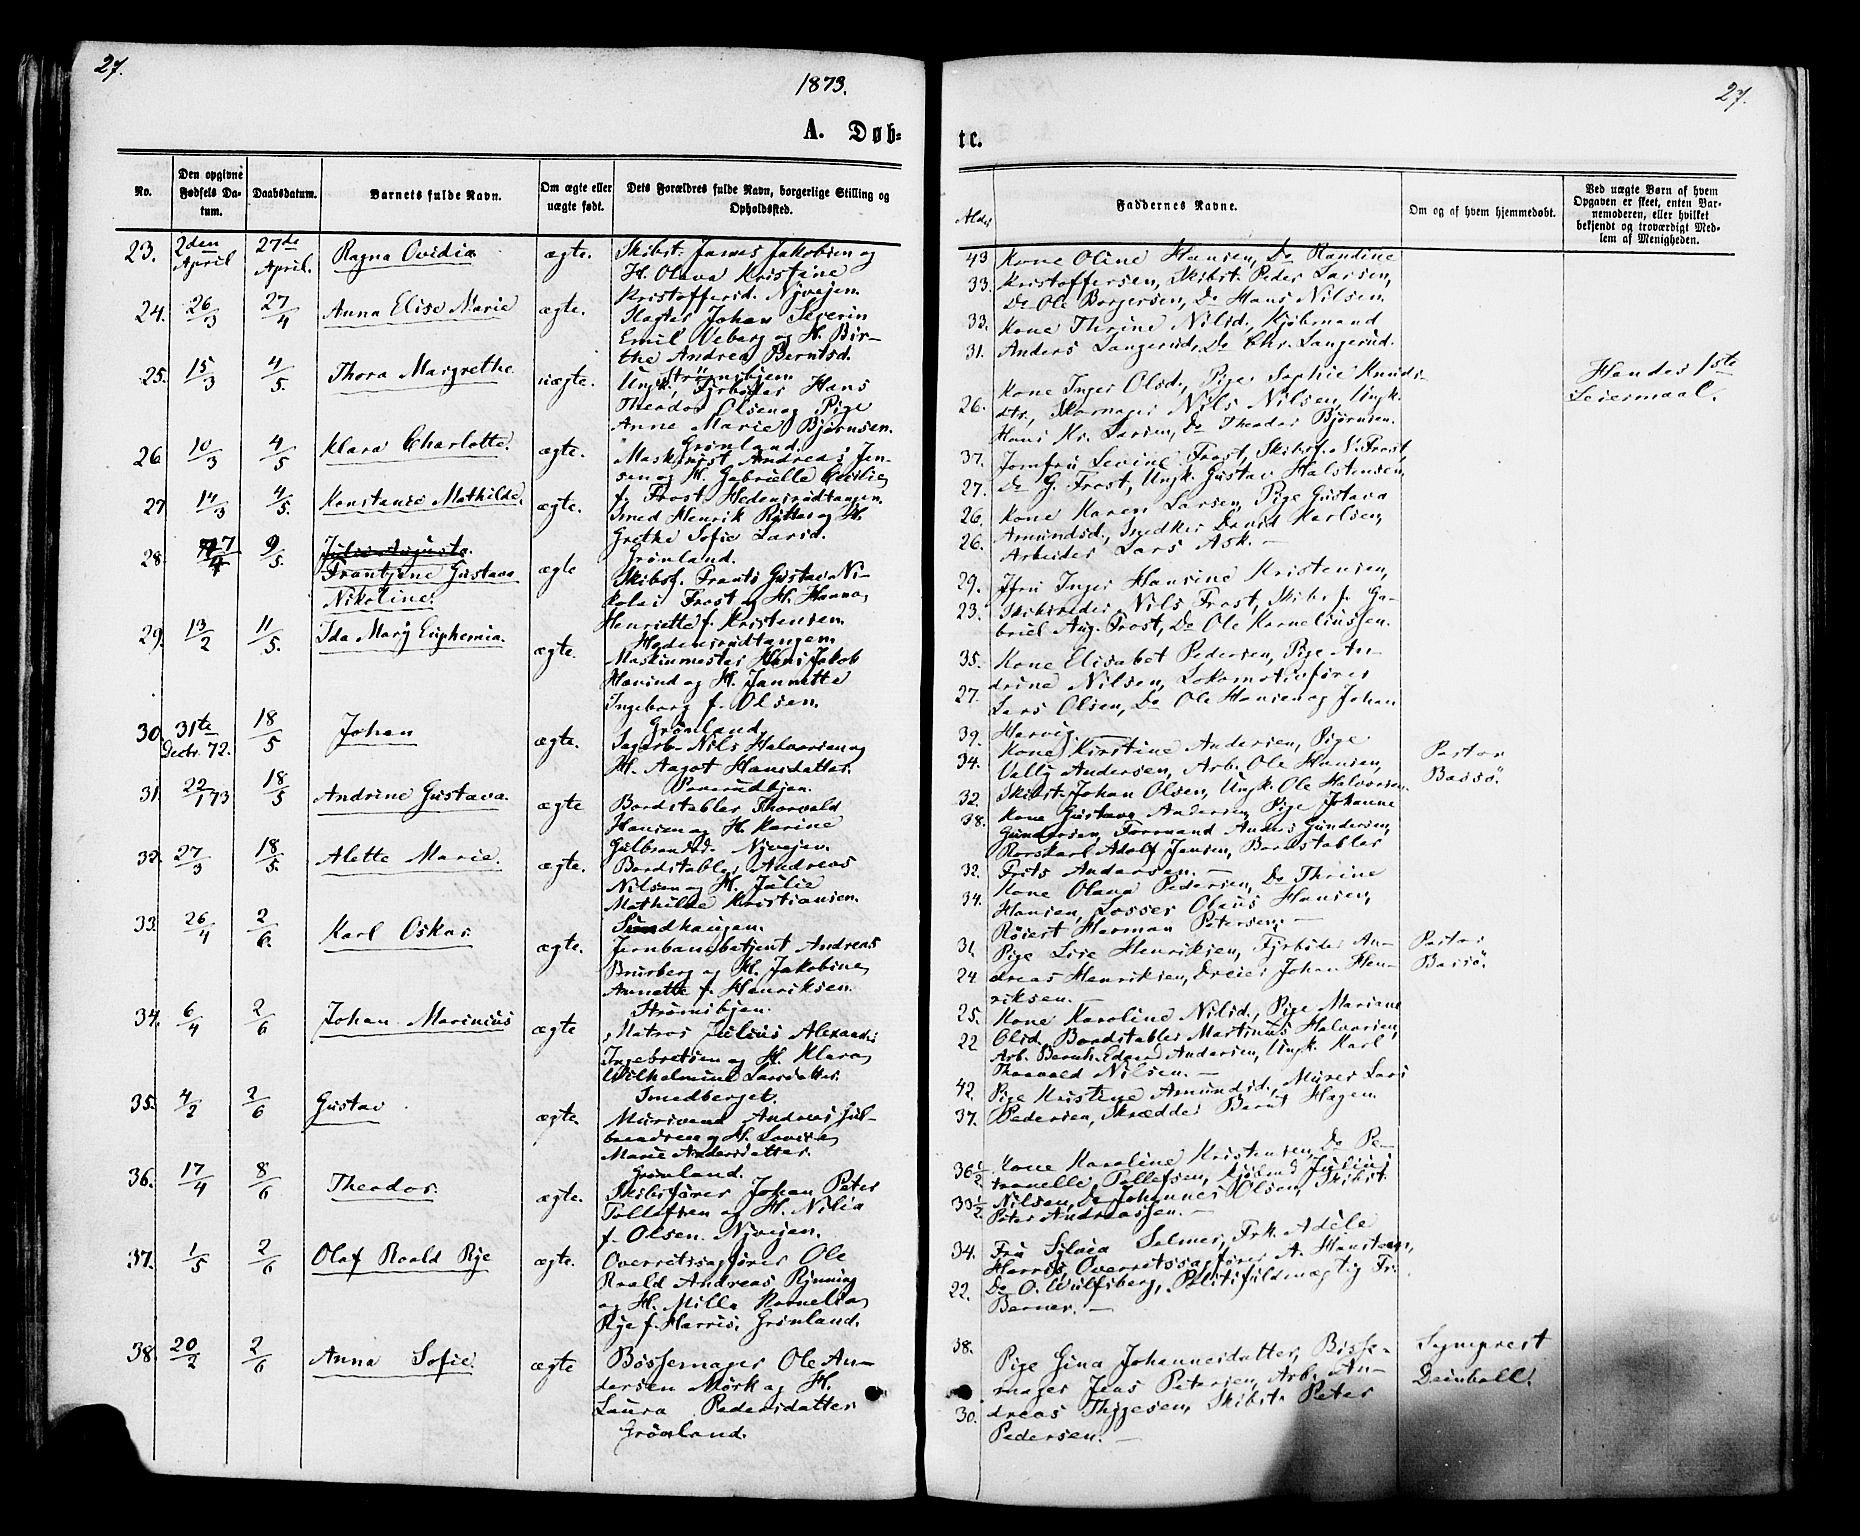 27.
1873.
A. Døb=
No.
Den opgivne
Fødsels Da-
tum.
Daabsdatum.
Barnets fulde Navn.
Om ægte eller
uægte født.
Dets Forældres fulde Navn, borgerlige Stilling og
Opholdssted.
23. 2den April 27de April. Ragna Ovidia ægte.
Skibst. James Jakobsen og
H. Olava Kristine
Kristoffersd. Nyvejen.
24. 26/3 27/4 Anna Elise Marie ægte.
Slagter Johan Severin
Emil Weberg og H. Bir-
the Andrea Berntsd.
Strømsbjen
25. 15/3 4/5 Thora Margrethe uægte.
Ungk. Fyrbøder Hans
Theodor Olsen og Pige
Anne Marie Bjørnsen.
Grønland.
26 10/3 4/5 Klara Charlotte. ægte.
Maskinist Andreas Jen-
sen og H. Gabrielle Cecilie
f. Frost Hedensrudtangen.
27 14/3 4/5 Konstanse Mathilde. ægte.
Smed Henrik Ritter og H.
Grethe Sofie Larsd.
Grønland.
28. 17/4 9/5. Julie Augusta.
Frantzine Gustava
Nikoline. ægte
Skibsf. Frants Gustav Ni-
kolai Frost og H. Hanna
Henriette f. Kristensen.
Hedensrudtangen.
29. 13/2 11/5. Ida Mary Euphemia. ægte.
Maskinmester Hans Jakob
Hævind og H. Jannette
Ingeborg f. Olsen.
Grønland.
30. 31te Decbr. 72. 18/5 Johan ægte.
Sagarb. Nils Halvorsen og
H. Aagot Hansdatter.
31. 22/1 73 18/5 Andrine Gustava. ægte
Bordstabler Thorvald
Hansen og H. Karine
Gulbrandsd. Nyvejen.
32. 27/3 18/5. Alette Marie. ægte.
Bordstabler Andreas
Nilsen og H. Julie
Mathilde Kristiansen.
Sundhaugen.
33. 26/4 2/6. Karl Oskar. ægte.
Jernbanebetjent Andreas
Bruberg og H. Jakobine
Annette f. Henriksen.
Strømsbjen.
34. 6/4 2/6 Johan Marinius ægte
Matros Julius Alexander
Ingebretsen og H. Klara
Wilhelmine Larsdatter.
Smedberget.
35. 4/2 2/6 Gustav ægte.
Murersvend Andreas Gul-
brandsen og H. Lovise
Marie Andersdatter.
Grønland.
36. 17/4 8/6 Theodor. ægte.
Skibsfører Johan Peter
Tollefsen og H. Nilia
f. Olsen. Nyvejen.
37. 1/5 2/6 Olaf Roald Rye ægte.
Overretssagfører Ole
Roald Andreas Rynning
og H. Milla Kornelia
Rye f. Harris. Grønland.
38. 20/2 2/6 Anna Sofie. ægte
Bøssemager Ole An-
dersen Mørk og H.
Laura Pedersdatter
Grønland.
27.
te.
Alder
Faddernes Navne.
Om og af hvem hjemmedøbt.
Ved uægte Børn af hvem
Opgaven er skeet, enten Bar-
nemoderen, eller hvilket
bekjendt og troværdigt Med-
lem af Menigheden.
43 Kone Oline Hansen, Do Randine
33. Kristoffersen, Skibst. Peder Larsen,
Do Ole Borgersen, Do Hans Nilsen.
33. Kone Thrine Nilsd., Kjøbmand
31. Anders Langerud, Do Chr. Langerud.
Kone Inger Olsd., Pige Sophie Knuds-
26. dtr, Skomager Nils Nilsen, Ungk.
Hans Kr. Larsen, Do Theodor Bjørnsen.
Hendes 1ste
Leiermaal.
37. Jomfru Levine Frost, Skibsf. N. Frost,
27. Do G. Frost, Ungk. Gustav Halstensen,
26. Kone Karen Larsen, Pige Gustava
26. Amundsd., Snedker David Karlsen,
Arbeider Lars Ask.
29. Jfru Inger Hansine Kristensen,
23. Skibsreder Nils Frost, Skibsf. Ga-
briel Aug. Frost, Do Ole Korneliussen.
35. Kone Elisabet Pedersen, Pige An-
27. drine Nilsen, Lokomotivfører
Lars Olsen, Do Ole Hansen og Johan
39. Hervig.
34. Kone Kirstine Andersen, Pige
Vally Andersen, Arb. Ole Hansen,
Pastor
Bassø.
32. Skibst. Johan Olsen, Ungk. Ole Halvorsen.
38. Kone Gustava Andersen, Pige Johanne
Gundersen, Formand Anders Gundersen,
Rorskarl Adolf Jensen, Bordstabler
32. Frits Andersen.
34. Kone Olava Pedersen, Do Thrine
Hansen, Losser Olaus Hansen,
Røiert Herman Petersen.
31 Pige Lise Henriksen, Fyrbøder An-
24 dreas Henriksen, Dreier Johan Hen-
riksen.
Pastor
Bassø.
25. Kone Karoline Nilsd., Pige Mariane
22 Olsd. Bordstabler Martinus Halvorsen,
Arb. Bernh. Edvard Andersen, Ungk. Karl
Thorvald Nilsen.
42. Pige Kristine Amundsd., Murer Lars
37. Pedersen, Skrædder Bernt Hagen.
36½ Kone Karoline Kristensen, Do Pe-
tronelle Tollefsen, Kjøbmd Julius
33½ Nilsen, Do Johannes Olsen, Skibst.
Peter Andreassen.
34. Fru Sylvia Salmer, Frk. Adéle
Harris, Overretssagfører A. Hansteen,
22. Do O. Wulfsberg, Politifuldmægtig Fr.
Berner.
38. Pige Gina Johannesdatter, Bøsse-
mager Jens Petersen, Arb. An-
30. dreas Thygesen, Skibst. Peter
Pedersen.
Sogneprest
Deinboll.